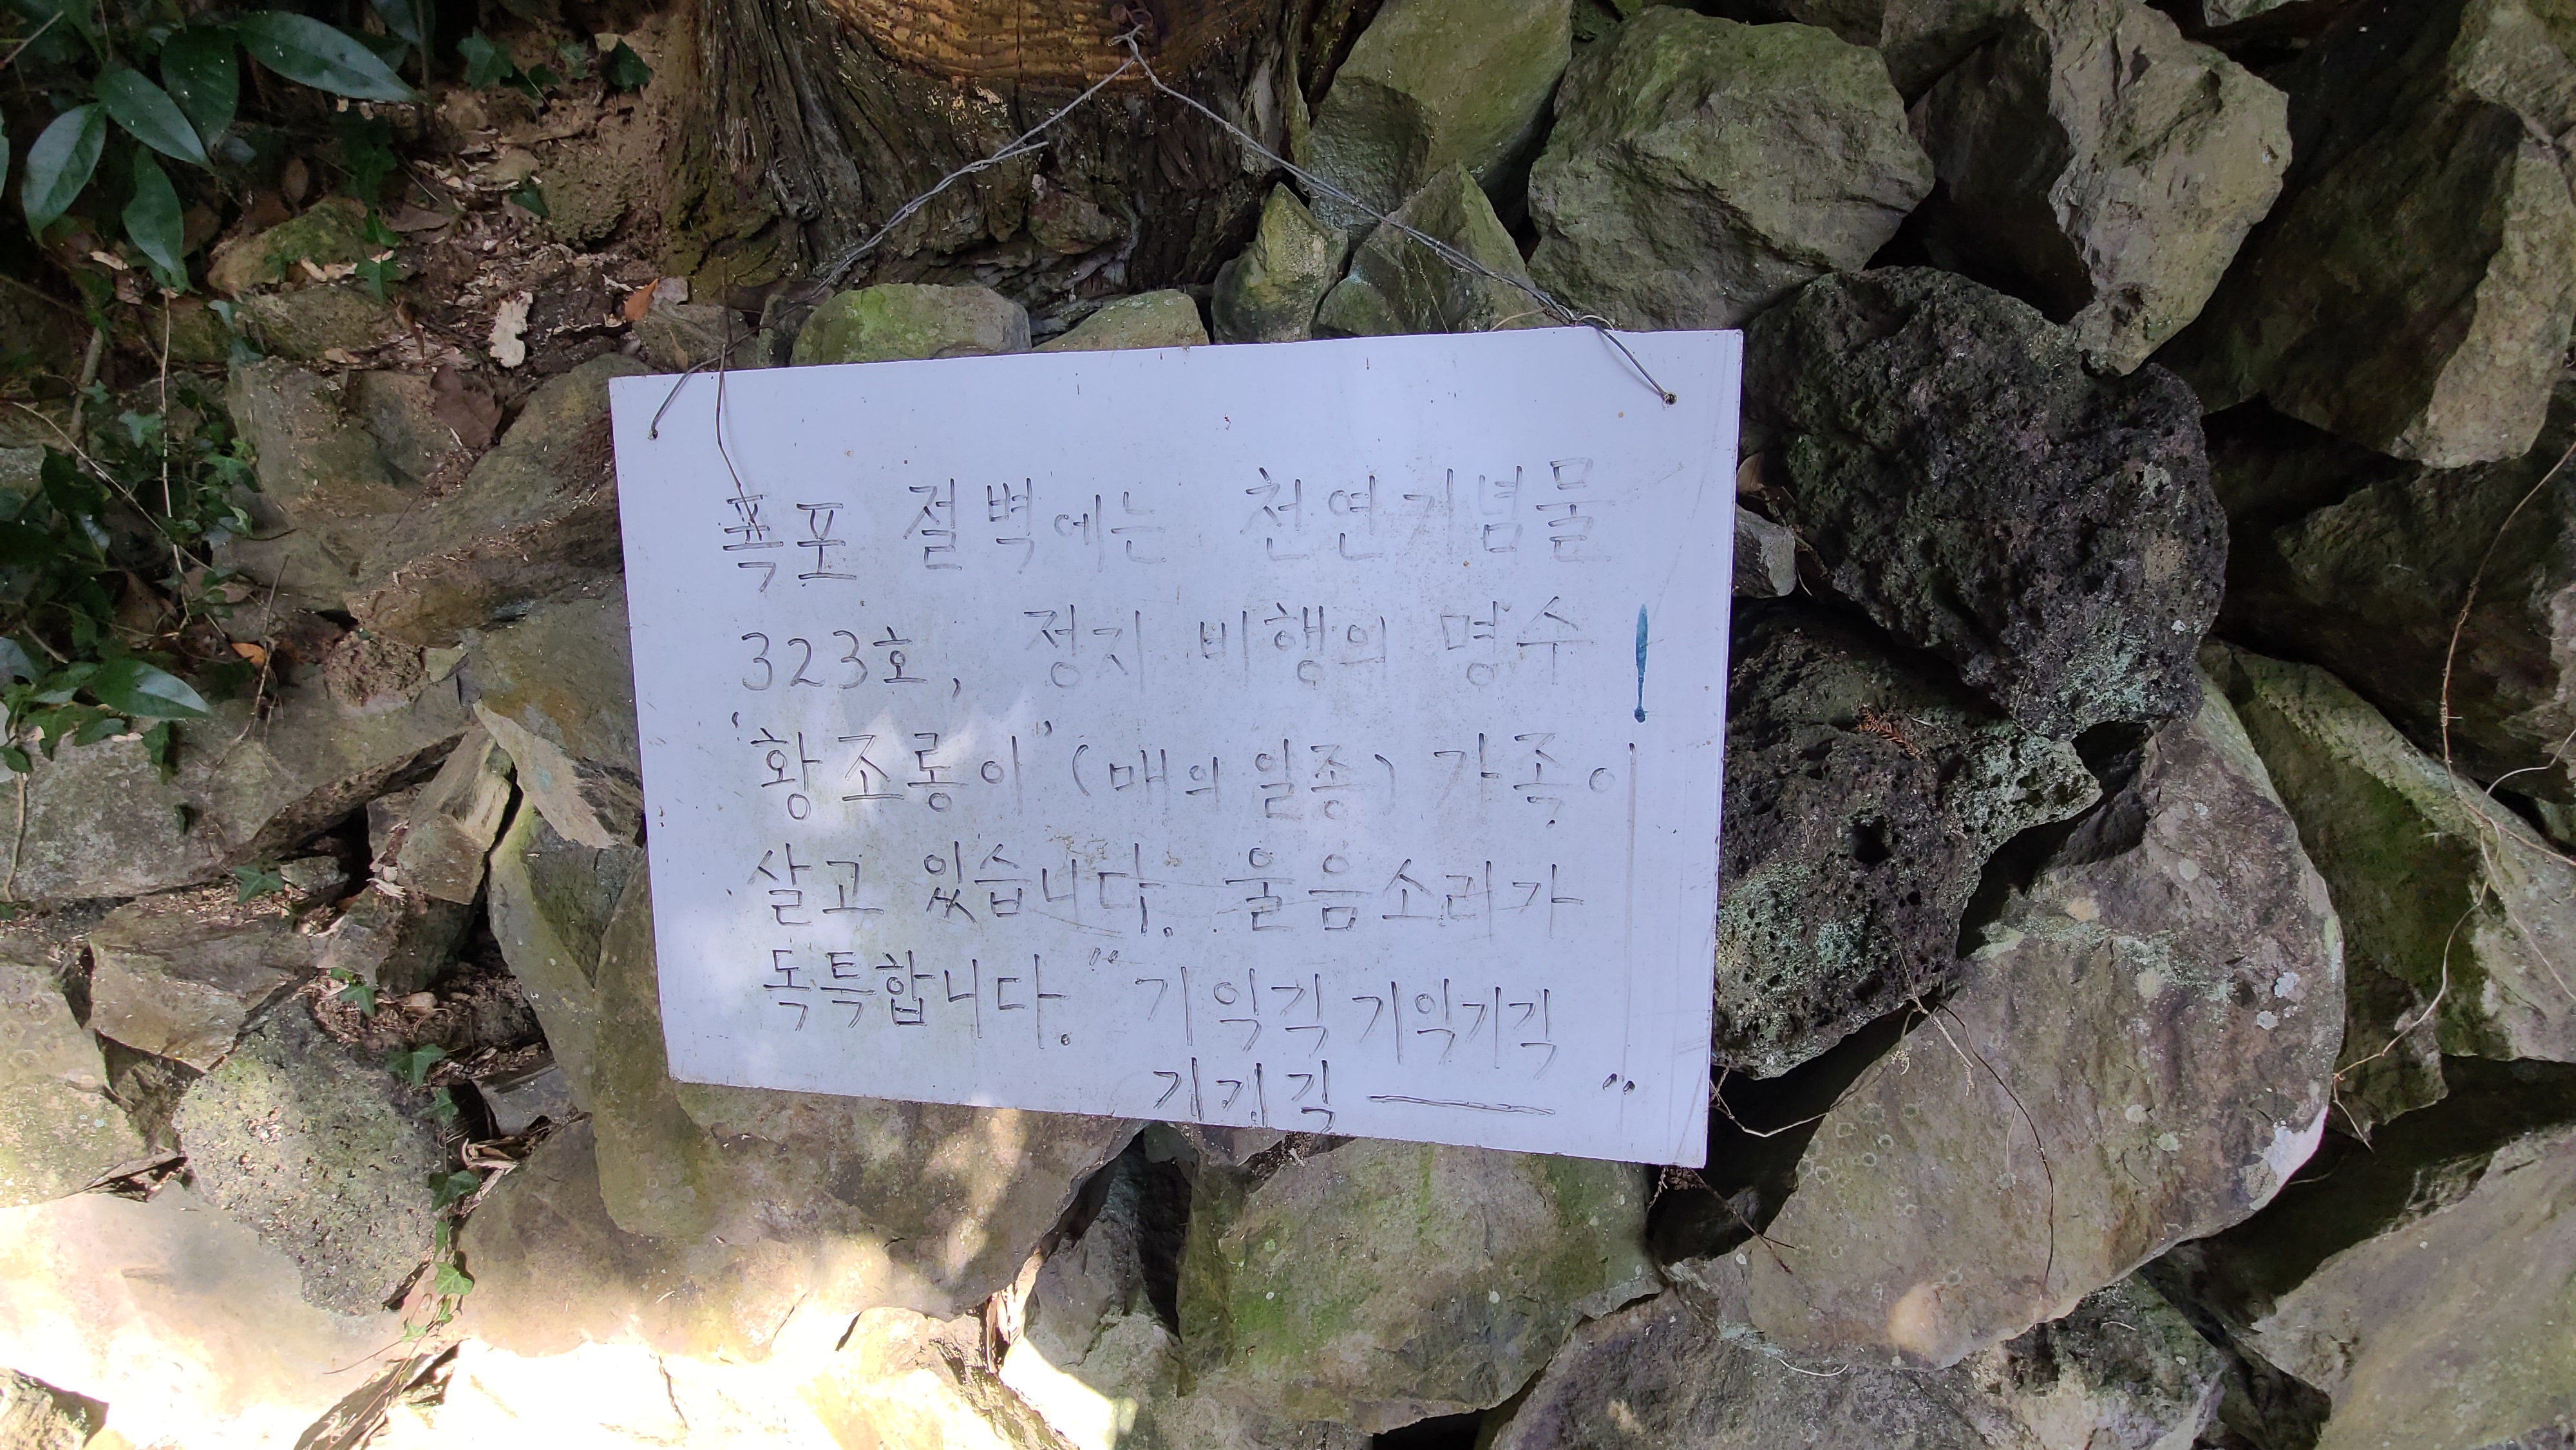 폭포 절벽에는 천연기념물
323호, 정지 비행의 명수!
"황조롱이" (매의 일종) 가족이
살고 있습니다. 울음소리가
독특합니다. "기익긱 기익기긱
기기긱 ——— "